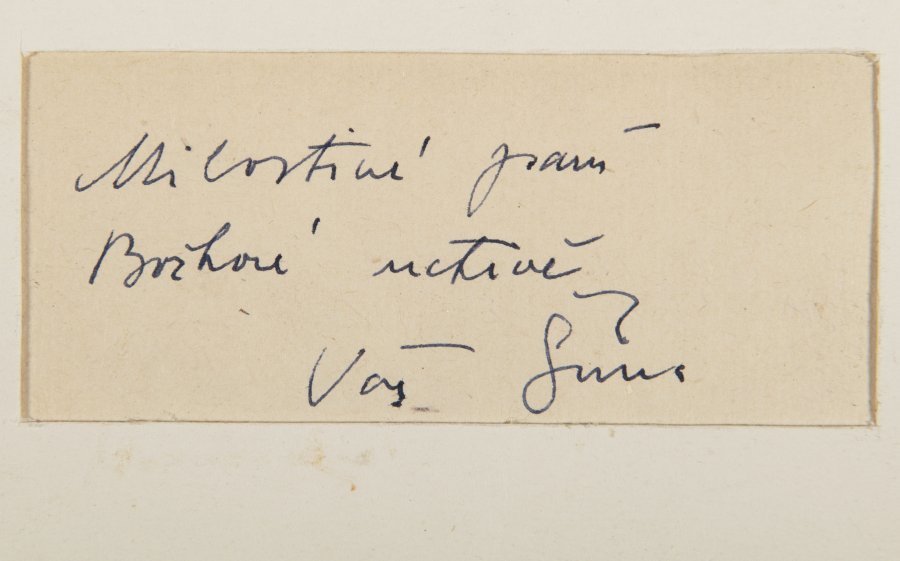 Milostivé paní
Božkové uctivě
Váš Šíma